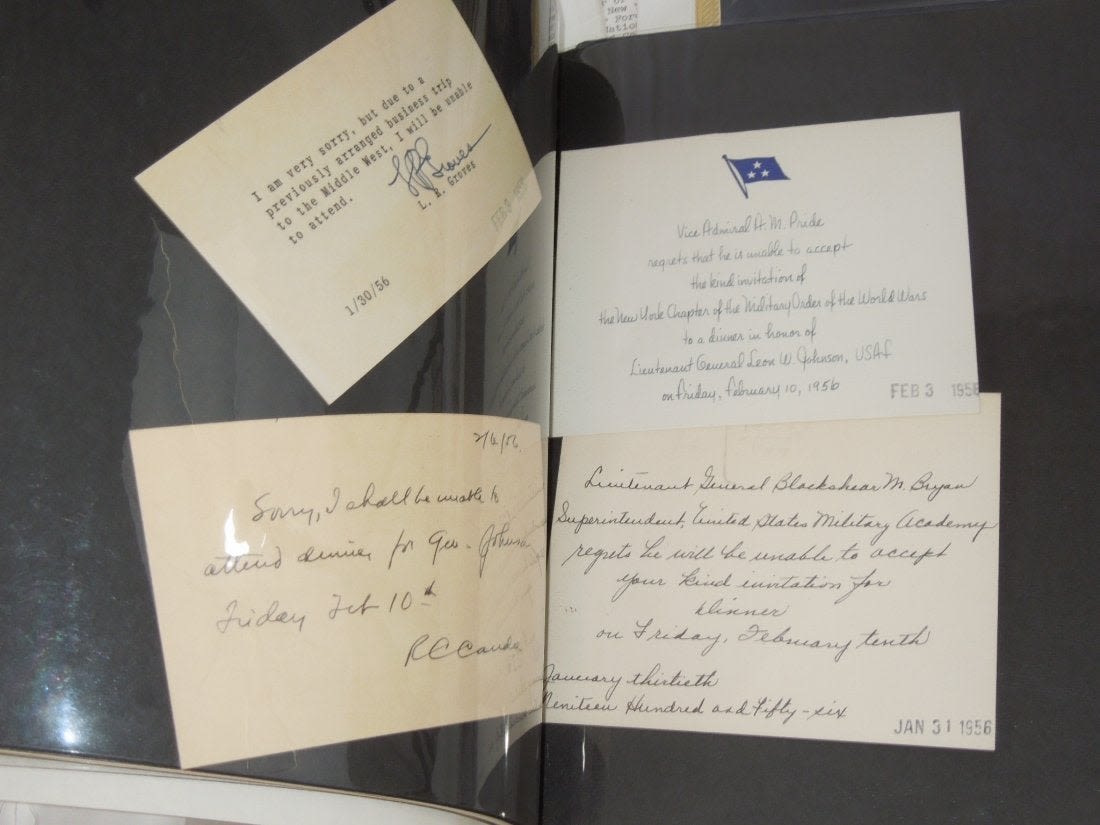 I am very sorry, but due to a
previously arranged business trip
to the Middle West, I will be unable
to attend.
L R Groves
L. R. Groves
FEB 3
1/30/56
Vice Admiral A. M. Pride
regrets that he is unable to accept
the kind invitation of
the New York Chapter of the Military Order of the World Wars
to a dinner in honor of
Lieutenant General Leon W. Johnson, USAF
on Friday, February 10, 1956
FEB 3 1956
2/6/56
Sorry, I shall be unable to
attend dinner for Gen. Johnson
Friday Feb 10th
Lieutenant General Blackshear M. Bryan
Superintendent, United States Military Academy
regrets he will be unable to accept
your kind invitation for
dinner
on Friday, February tenth
January thirtieth
Nineteen Hundred and Fifty-six
JAN 31 1956